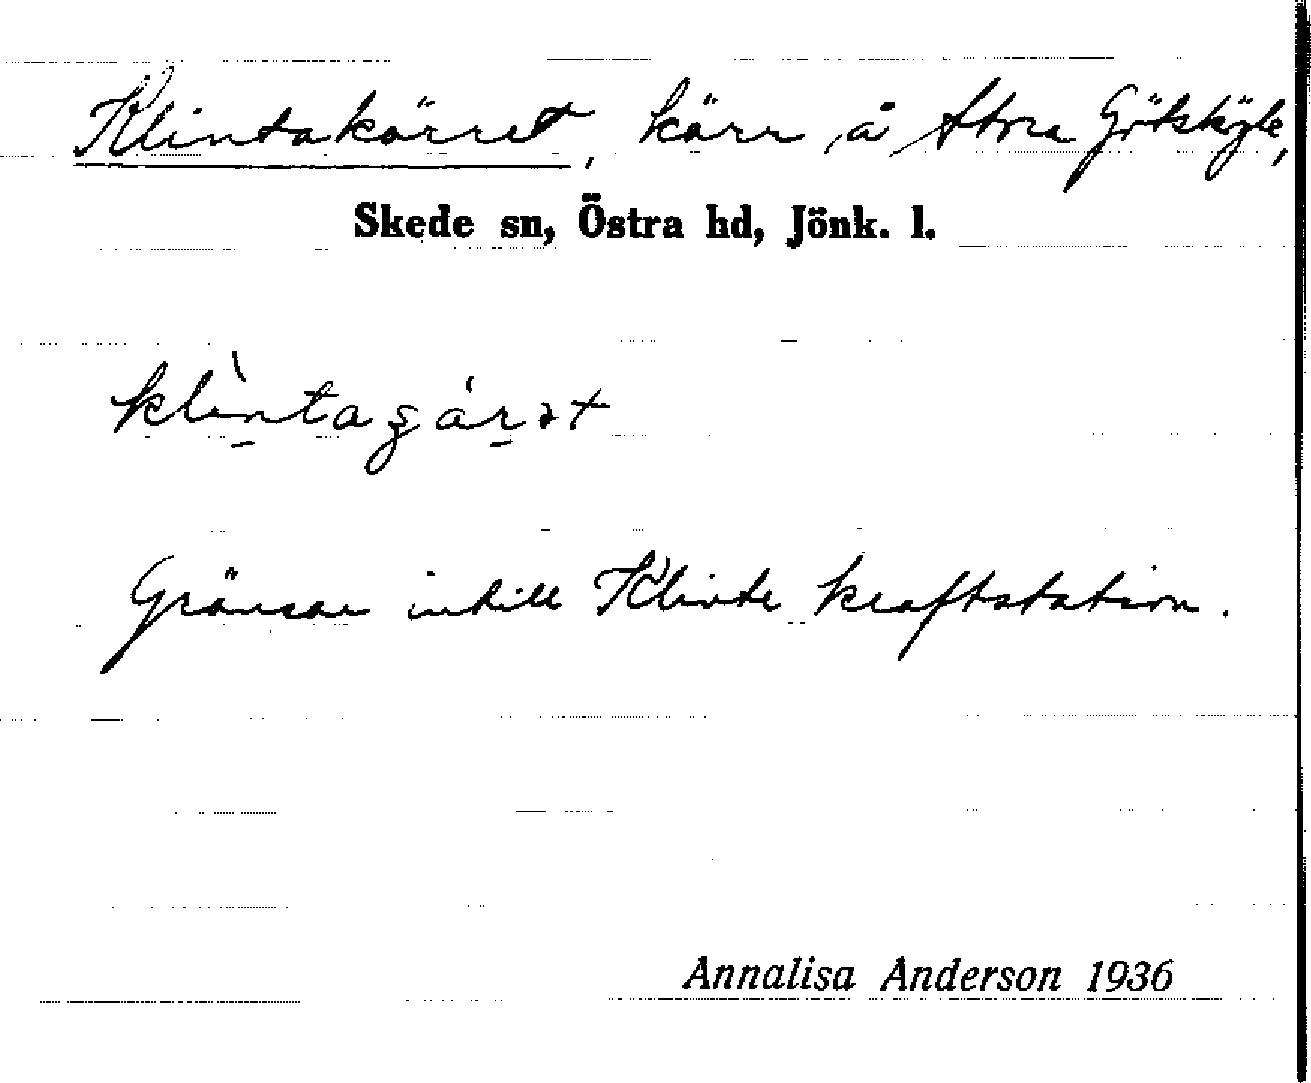 Klintakärret, kärr å Stora Göksköle,
Skede sn, Östra hd, Jönk. l.
Gränsar intill Klinte kraftstation.
Annalisa Anderson 1936